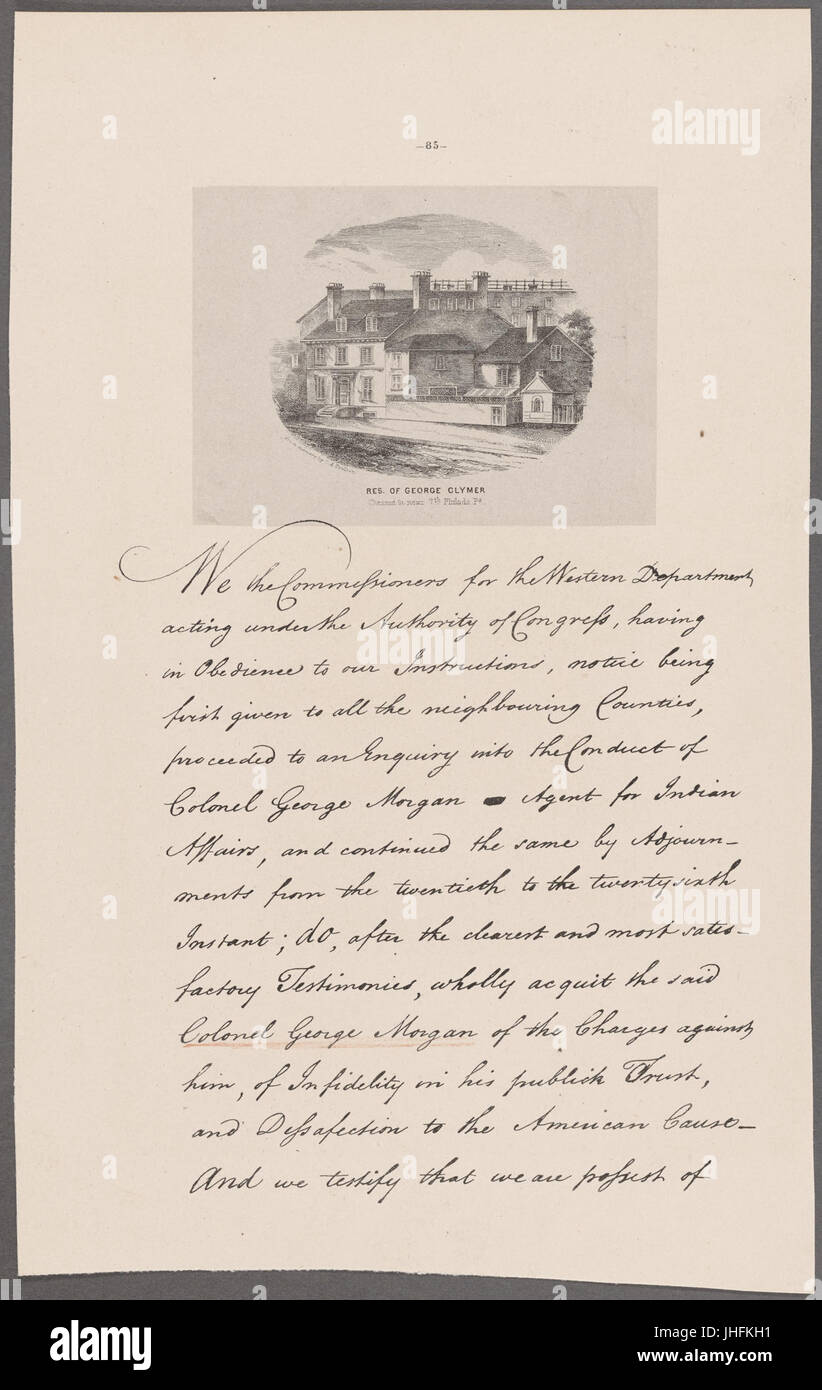 -85-
RES. OF GEORGE CLYMER
Chesnut St. near 7th Philada Pa.
We the Commissioners for the Western Department
acting under the Authority of Congress, having
in Obedience to our Instructions, notice being
first given to all the neighbouring Counties,
proceeded to an Enquiry into the Conduct of
Colonel George Morgan Agent for Indian
Affairs, and continued the same by Adjourn-
ments from the twentieth to the twenty sixth
Instant; do, after the clearest and most satis-
factory Testimonies, wholly acquit the said
Colonel George Morgan of the Charges against
him, of Infidelity in his publick Trust,
and Dissafection to the American Cause-
And we testify that we are possest of
alamy stock photo
JHFKH1
www.alamy.com